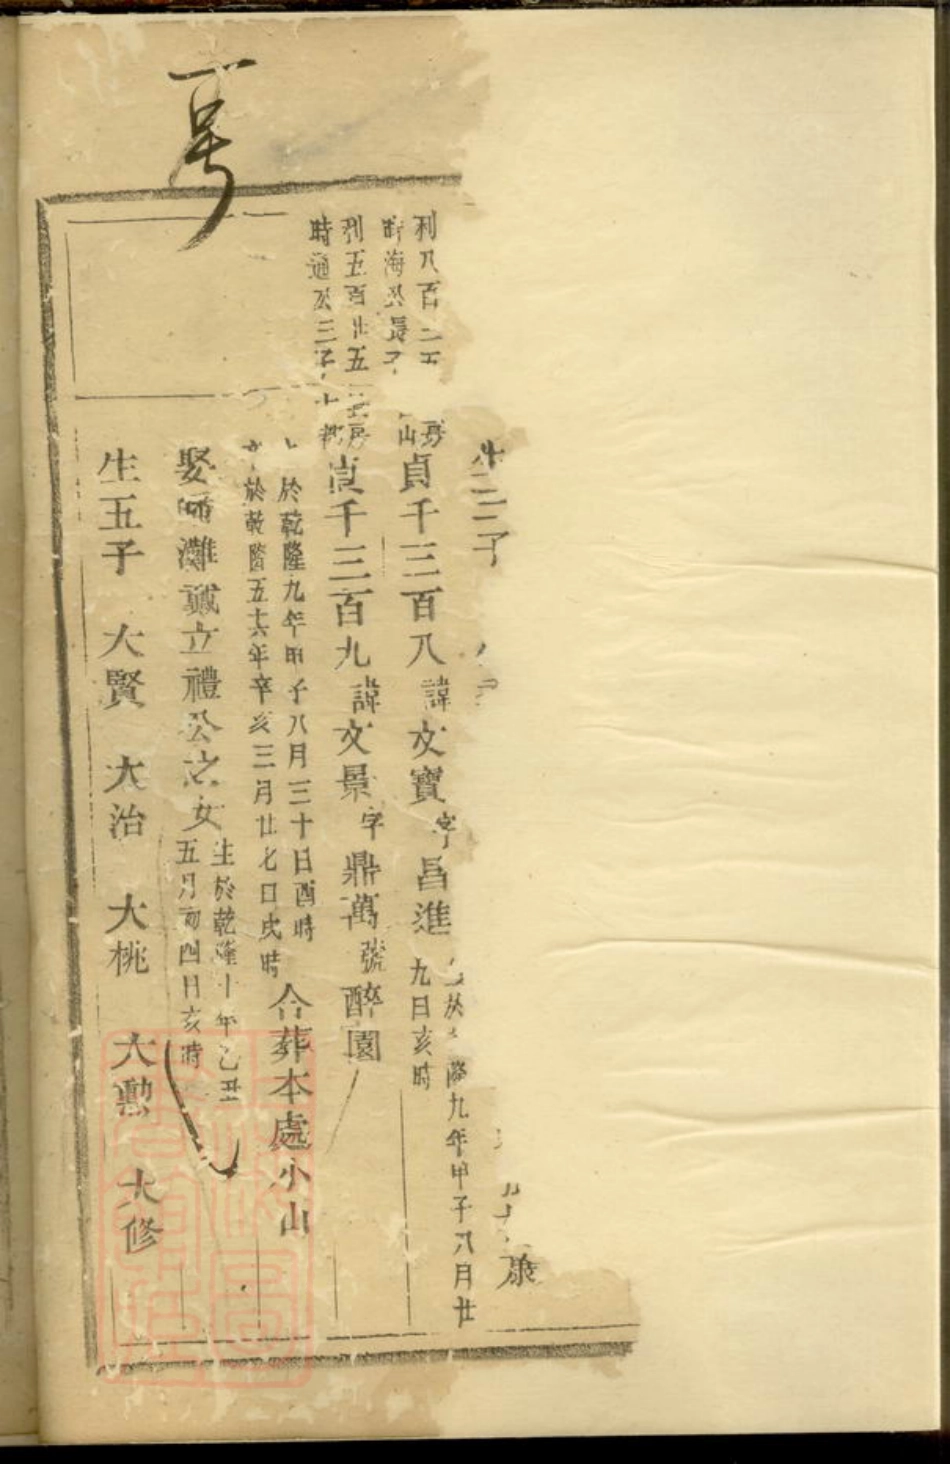 生二子
康
利八百二五
時海公長子
房山
貞千三百八諱文寶字昌進
於 隆九年甲子八月廿
九日亥時
利五百廿五
時通公三子
房
貞千三百九諱文景字鼎萬號醉園
於乾隆九年甲子八月三十日酉時
於乾隆五十六年辛亥三月廿七日戌時
合葬本處小山
娶 灘 立禮公之女
生於乾隆十年乙丑
五月初四日亥時
生五子 大賢 大治 大桃 大勲 大修